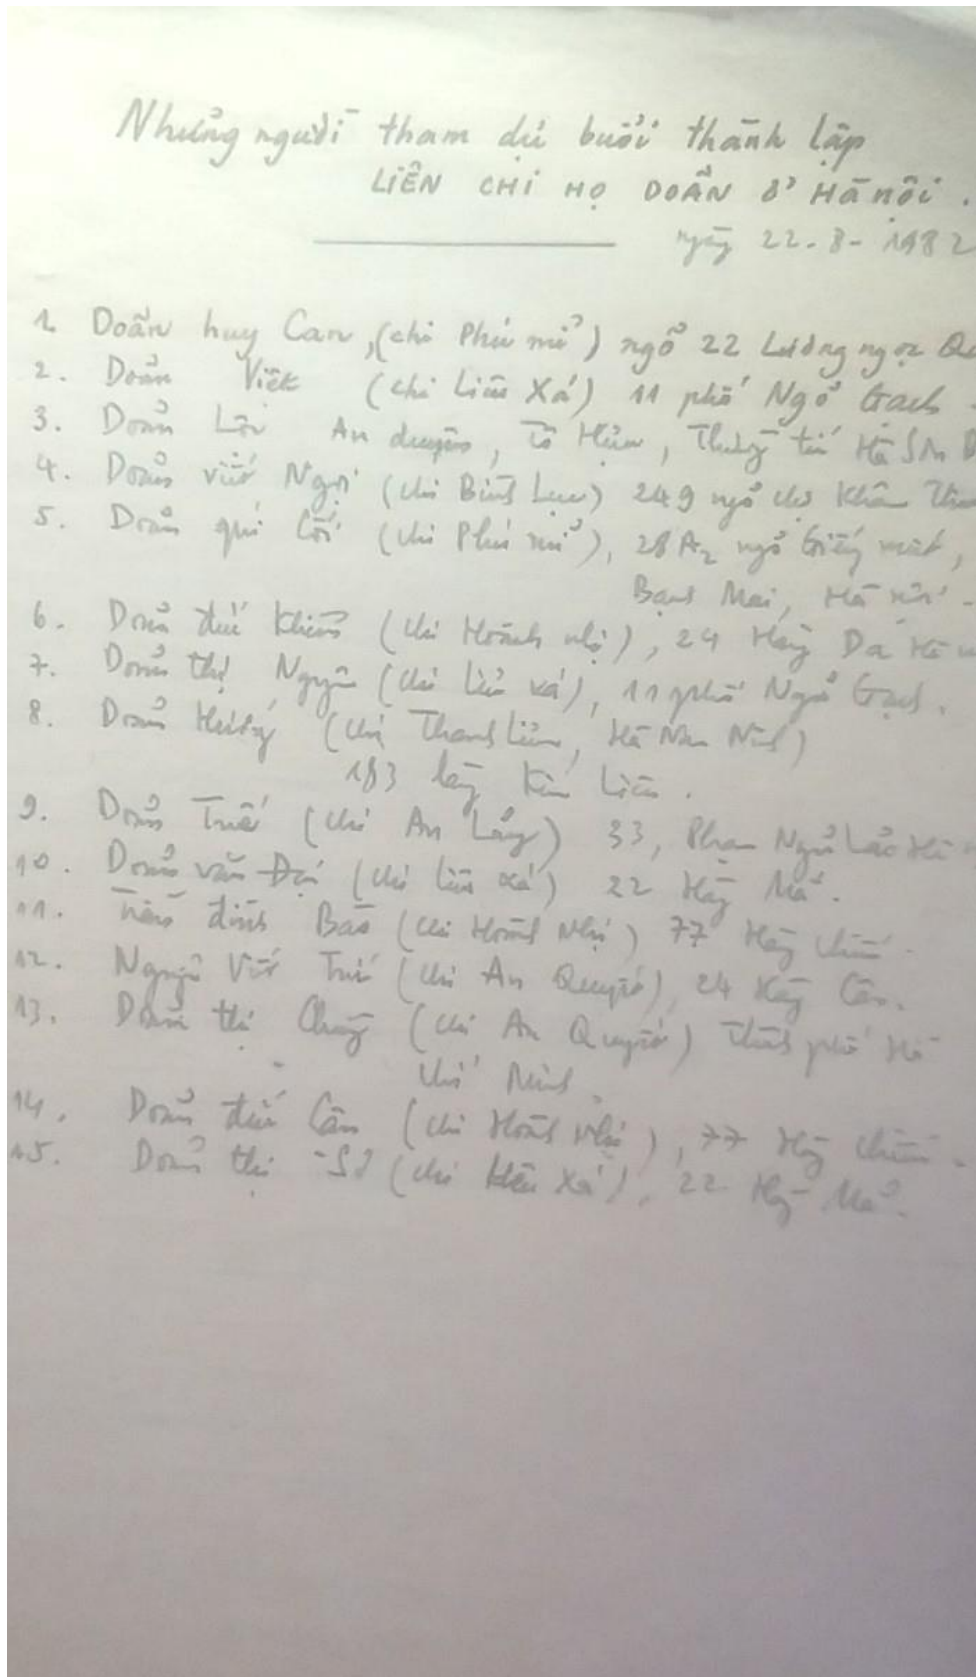 Những người tham dự buổi thành lập
LIÊN CHI HỌ DOÃN ở HÀ NỘI.
ngày 22-8-1982
1. Doãn huy Can, (chi Phú mỹ) ngõ 22 Lương ngọc
2. Doãn Viết (chi Liễu Xá) 11 phố Ngõ Gạch
3. Doãn Lôi An duyên, Tô Hiệu, Thường tín Hà Sơn B
4. Doãn viết (chi Bình Lục) 249 ngõ chợ Khâm
5. Doãn quí (chi Phú mỹ), 28 A2 ngõ Giếng mứt,
Bạch Mai, Hà nội -
6. Doãn đức Khiêm (chi Hoành nhị), 24 Hàng Da Hà
7. Doãn thị Nguyên (chi Liễu xá), 11 phố Ngõ Gạch.
8. Doãn Hường (chi Thanh Liêm, Hà Nam Ninh)
183 làng Kim Liên.
9. Doãn (chi An Lãng) 33, Phạm Ngũ Lão Hà
10. Doãn văn Đại (chi Liễu xá) 22 Hàng Mã.
11. đình Bảo (chi Hoành Nhị) 77 Hàng chiếu.
12. Nguyễn Viết (chi An Quyết), 24 Hàng Cân.
13. Doãn thị (chi An Quyết) Thành phố Hồ
chí Minh.
14. Doãn đức Cân (chi Hoành nhị), 77 Hàng chiếu.
15. Doãn thị (chi Xá), 22 Hàng Mã.